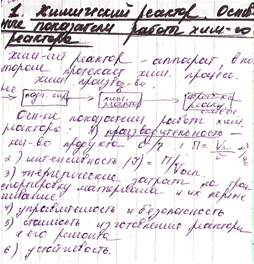 1. Химический реактор. Основ-
ные показатели работы хим-го
реактора
Хим-ий реактор - аппарат, в ко-
тором протекает хим. процесс.
Хим. произв-во
Осн-ые показатели работы хим.
реактора: 1) производительность -
кол-во продукта
2) интенсивность
3) энергетические затраты на тран
спортировку материалов и их переме
шивание
4) управляемость и безопасность
5) стоимость изготовления реактора
и его ремонта
6) устойчивость.